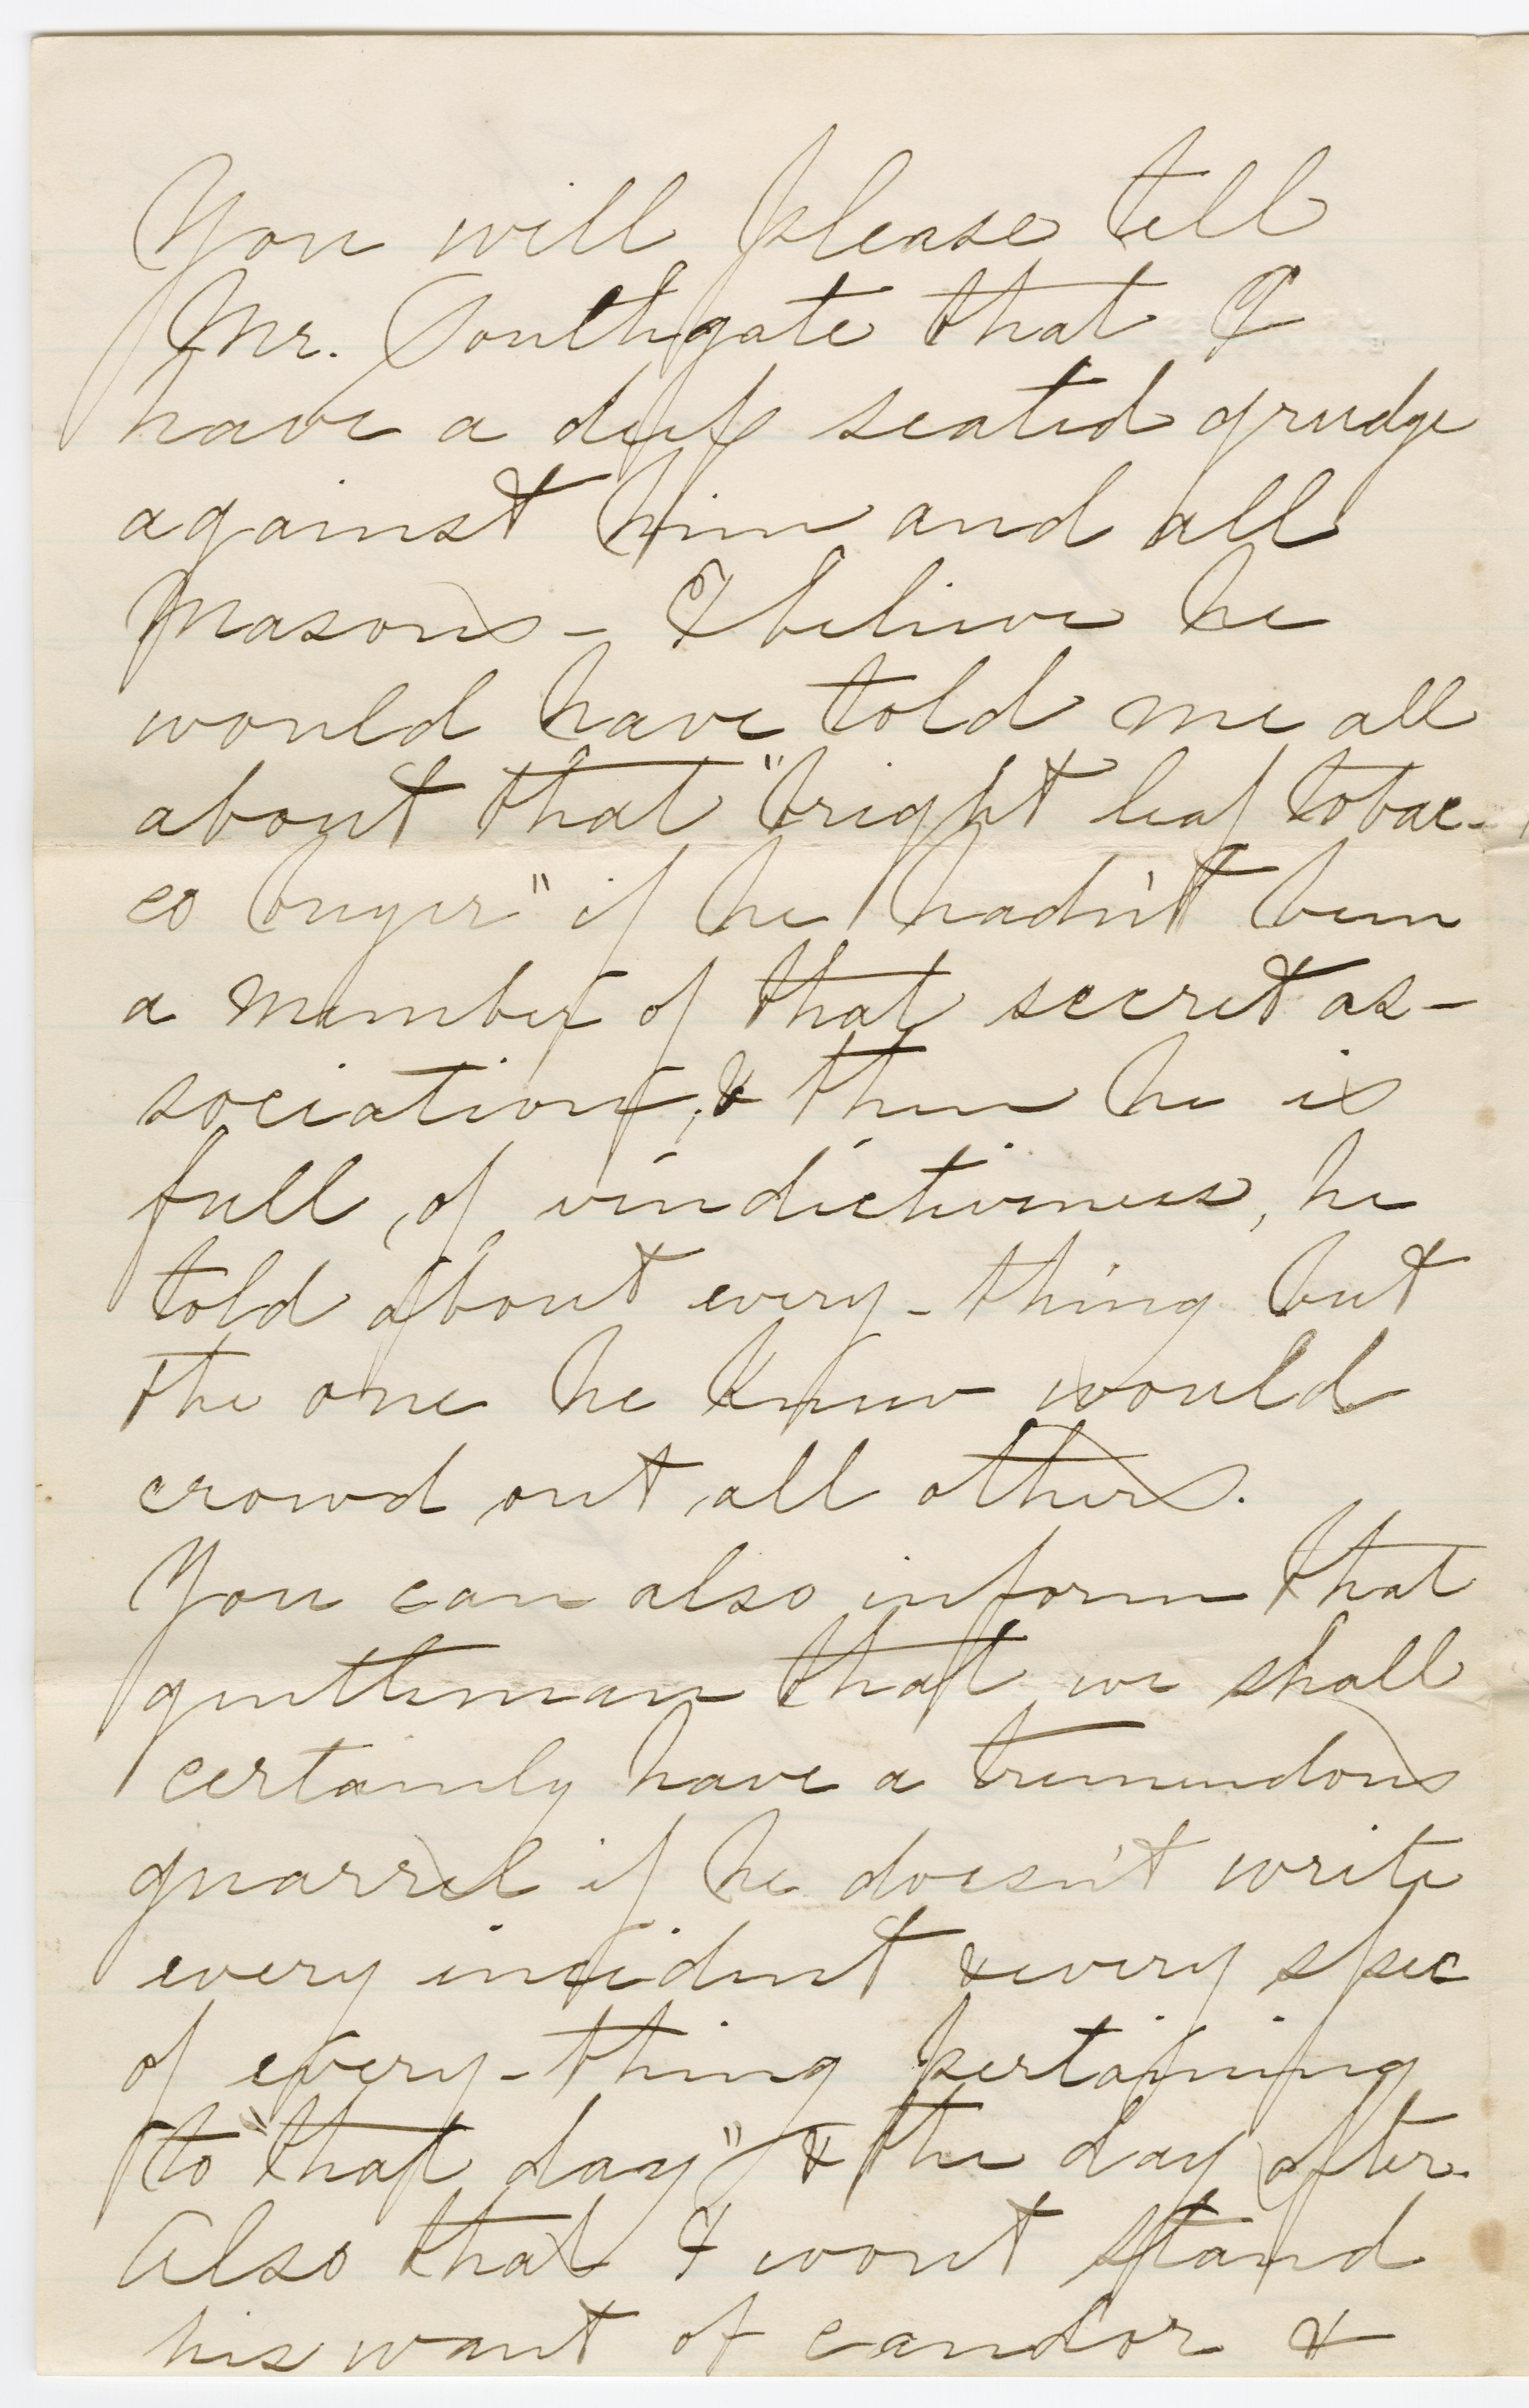 You will please tell
Mr. Southgate that I
have a deep seated grudge
against him and all
Masons - I believe he
would have told me all
about that "bright leaf tobac-
co buyer" if he hadn't been
a member of that secret as-
sociation, & then he is
full of vindictiveness, he
told about every-thing but
the one he knew would
crowd out all others.
You can also inform that
gentleman that we shall
certainly have a tremendous
quarrel if he doesn't write
every incident & every spec
of every-thing pertaining
to "that day" & the day after.
Also that I wont stand
his want of candor &